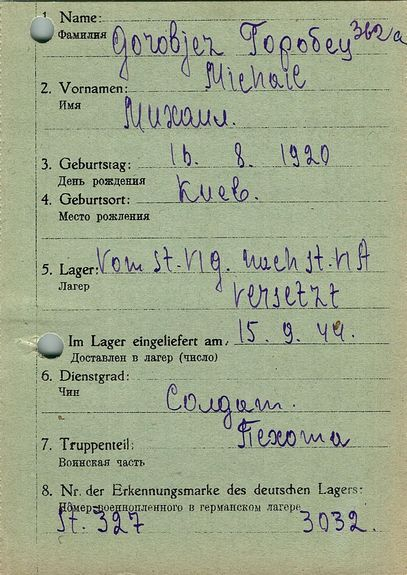 1. Name: Gorobjez Горобец 362a
Фамилия
2. Vornamen: Michail
Имя Михаил.
3. Geburtstag: 16. 8. 1920
День рождения
4. Geburtsort: Киев.
Место рождения
5. Lager: Vom St. VI G. nach St. VI A
Лагер versetzt
Im Lager eingeliefert am, 15. 9. 44.
Доставлен в лагер (число)
6. Dienstgrad:
Чин Солдат.
7. Truppenteil: Пехота
Воинская часть
8. Nr. der Erkennungsmarke des deutschen Lagers:
Номер военнопленного в германском лагере
St. 327 3032.